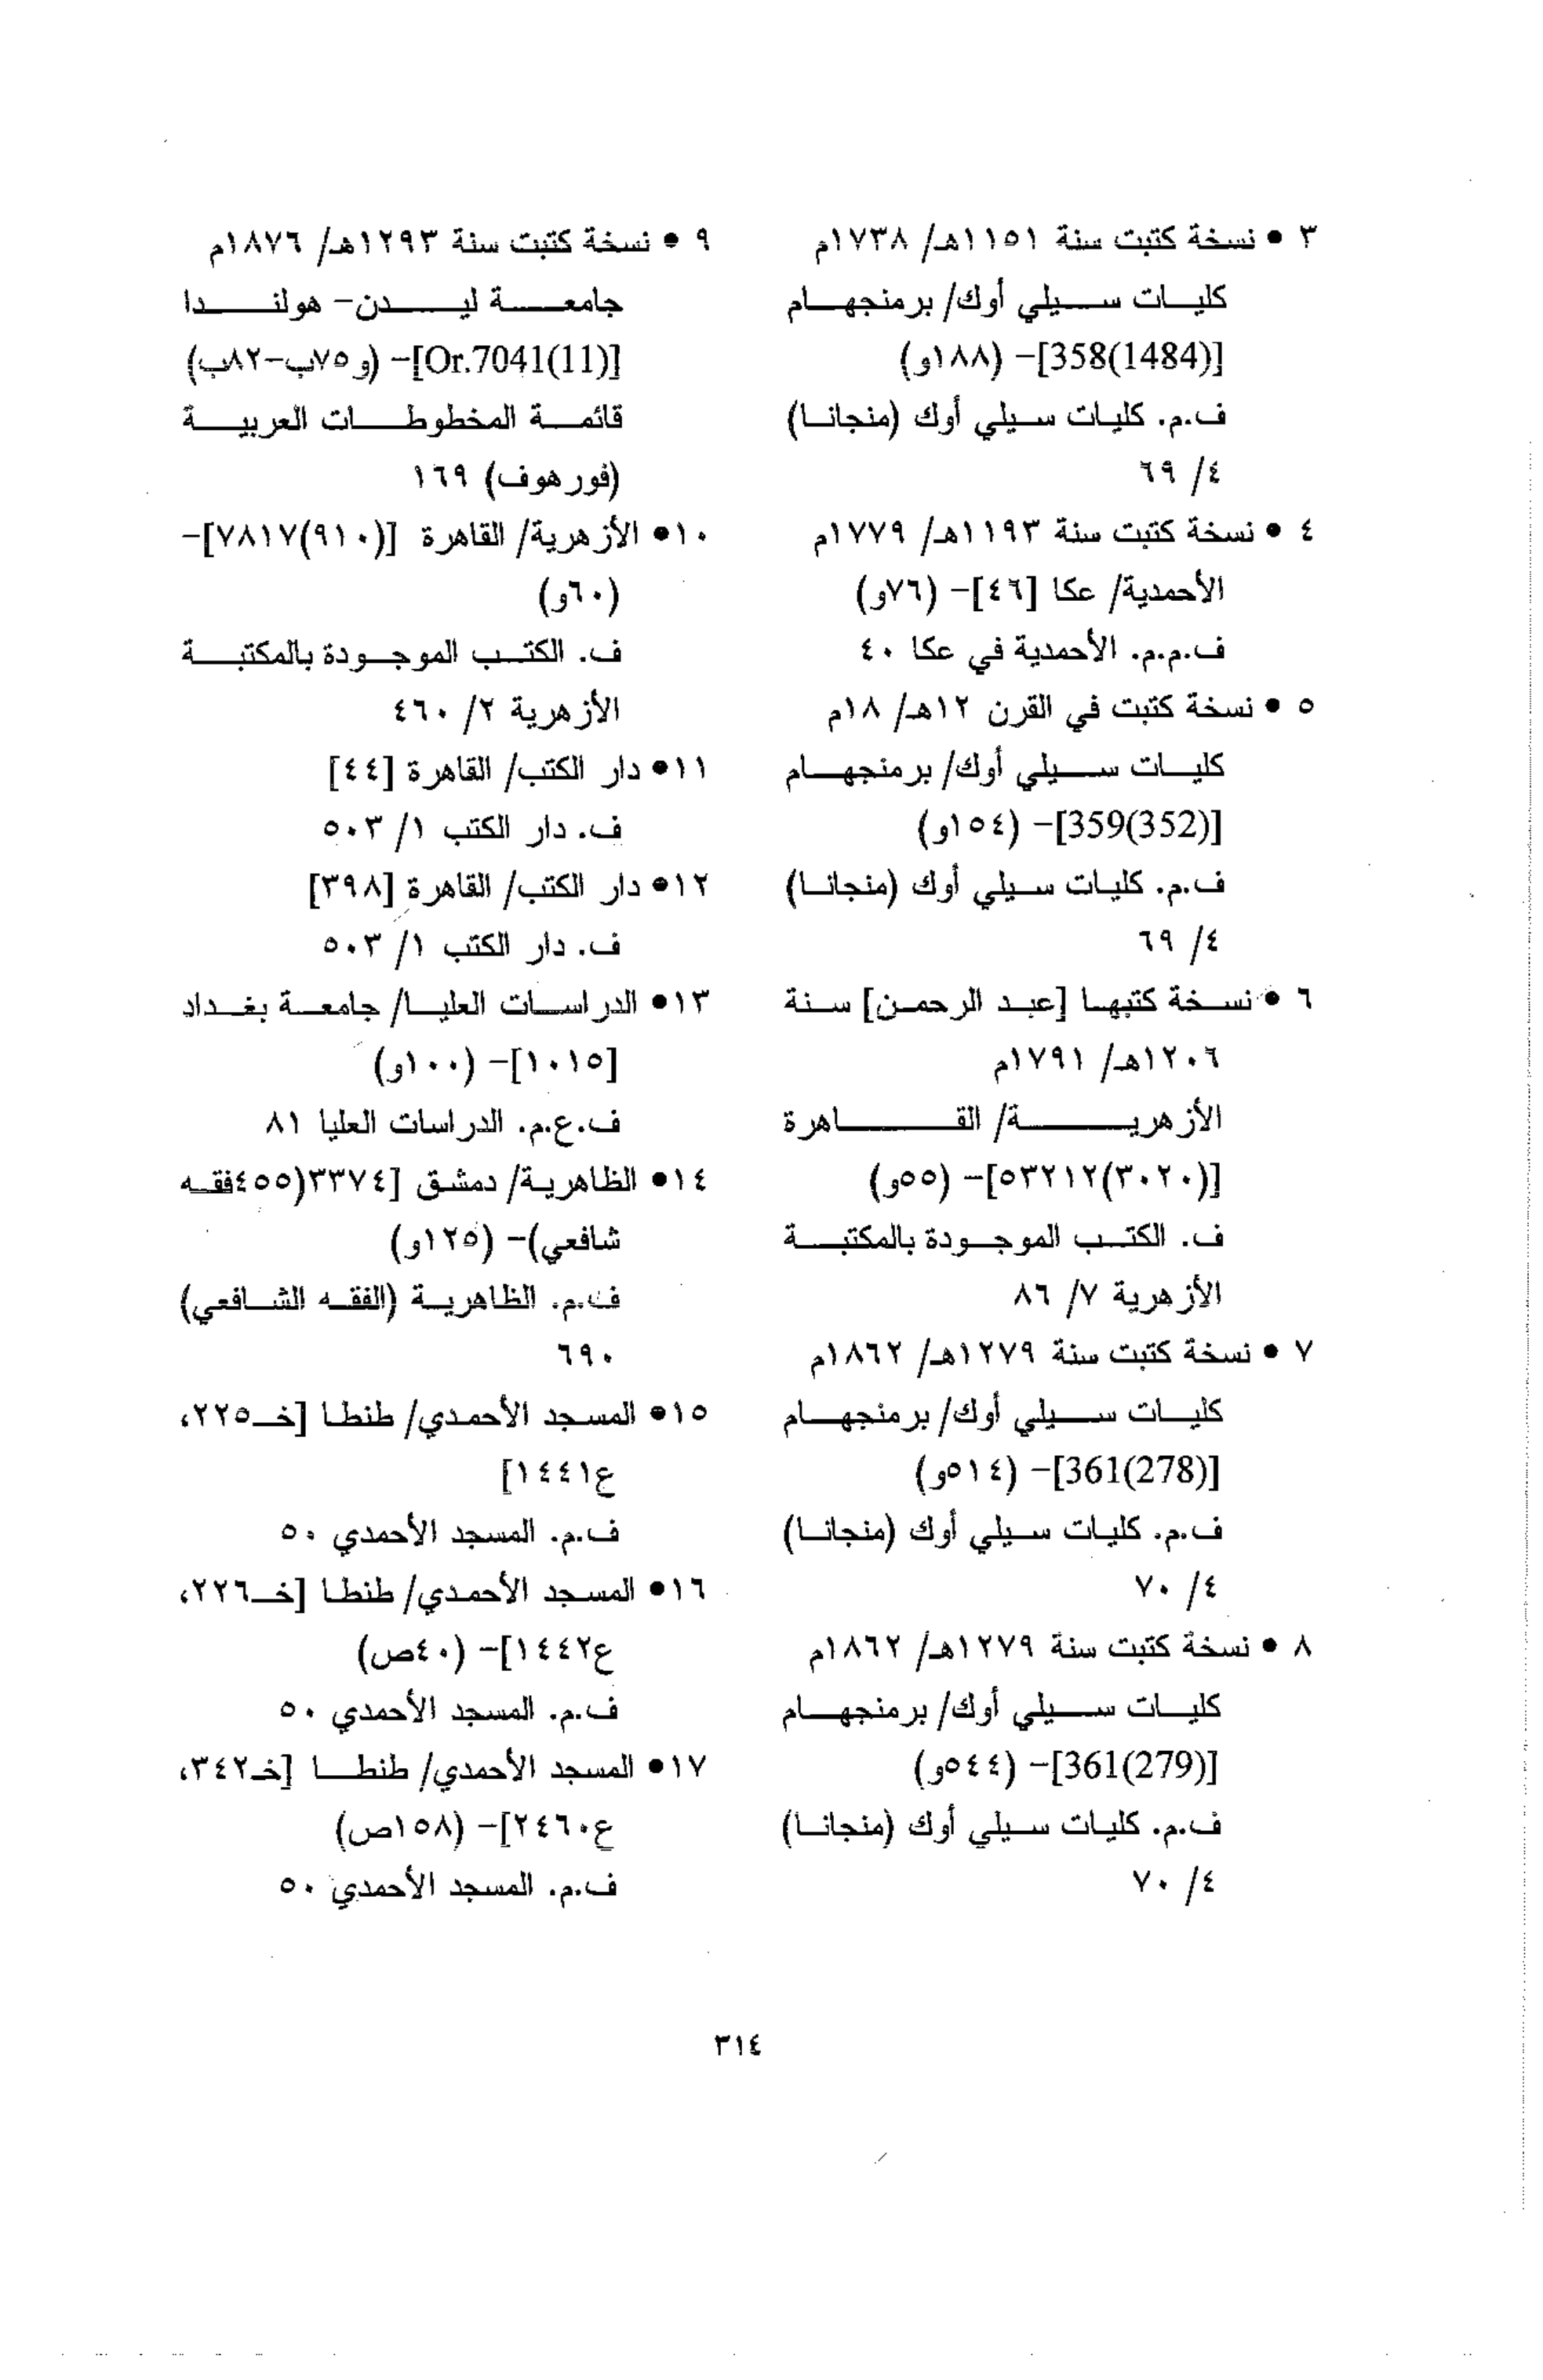 ٣ • نسخة كتبت سنة ١١٥١هـ/ ١٧٣٨م
كليات سيلي أوك/ برمنجهام
[358(1484)]- (١٨٨و)
ف.م. كليات سيلي أوك (منجانا)
٤/ ٦٩
٤ • نسخة كتبت سنة ١١٩٣هـ/ ١٧٧٩م
الأحمدية/ عكا [٤٦]- (٧٦و)
ف.م.م. الأحمدية في عكا ٤٠
٥ • نسخة كتبت في القرن ١٢هـ/ ١٨م
كليات سيلي أوك/ برمنجهام
[359(352)]- (١٥٤و)
ف.م. كليات سيلي أوك (منجانا)
٤/ ٦٩
٦ • نسخة كتبها [عبد الرحمن] سنة
١٢٠٦هـ/ ١٧٩١م
الأزهرية/ القاهرة
[(٣٠٢٠)٥٣٢١٢]- (٥٥و)
ف. الكتب الموجودة بالمكتبة
الأزهرية ٧/ ٨٦
٧ • نسخة كتبت سنة ١٢٧٩هـ/ ١٨٦٢م
كليات سيلي أوك/ برمنجهام
[361(278)]- (٥١٤و)
ف.م. كليات سيلي أوك (منجانا)
٤/ ٧٠
٨ • نسخة كتبت سنة ١٢٧٩هـ/ ١٨٦٢م
كليات سيلي أوك/ برمنجهام
[361(279)]- (٥٤٤و)
ف.م. كليات سيلي أوك (منجانا)
٤/ ٧٠
٩ • نسخة كتبت سنة ١٢٩٣هـ/ ١٨٧٦م
جامعة ليدن- هولندا
[Or.7041(11)]- (و٧٥ب-٨٢ب)
قائمة المخطوطات العربية
(فورهوف) ١٦٩
١٠• الأزهرية/ القاهرة [(٩١٠)٧٨١٧]-
(٦٠و)
ف. الكتب الموجودة بالمكتبة
الأزهرية ٢/ ٤٦٠
١١• دار الكتب/ القاهرة [٤٤]
ف. دار الكتب ١/ ٥٠٣
١٢• دار الكتب/ القاهرة [٣٩٨]
ف. دار الكتب ١/ ٥٠٣
١٣• الدراسات العليا/ جامعة بغداد
[١٠١٥]- (١٠٠و)
ف.ع.م. الدراسات العليا ٨١
١٤• الظاهرية/ دمشق [٣٣٧٤(٤٥٥فقه
شافعي)- (١٢٥و)
ف.م. الظاهرية (الفقه الشافعي)
٦٩٠
١٥• المسجد الأحمدي/ طنطا [خـ٢٢٥،
ع١٤٤١]
ف.م. المسجد الأحمدي ٥٠
١٦• المسجد الأحمدي/ طنطا [خـ٢٢٦،
ع١٤٤٢]- (٤٠ص)
ف.م. المسجد الأحمدي ٥٠
١٧• المسجد الأحمدي/ طنطا [خـ٣٤٢،
ع٢٤٦٠]- (١٥٨ص)
ف.م. المسجد الأحمدي ٥٠
٣١٤